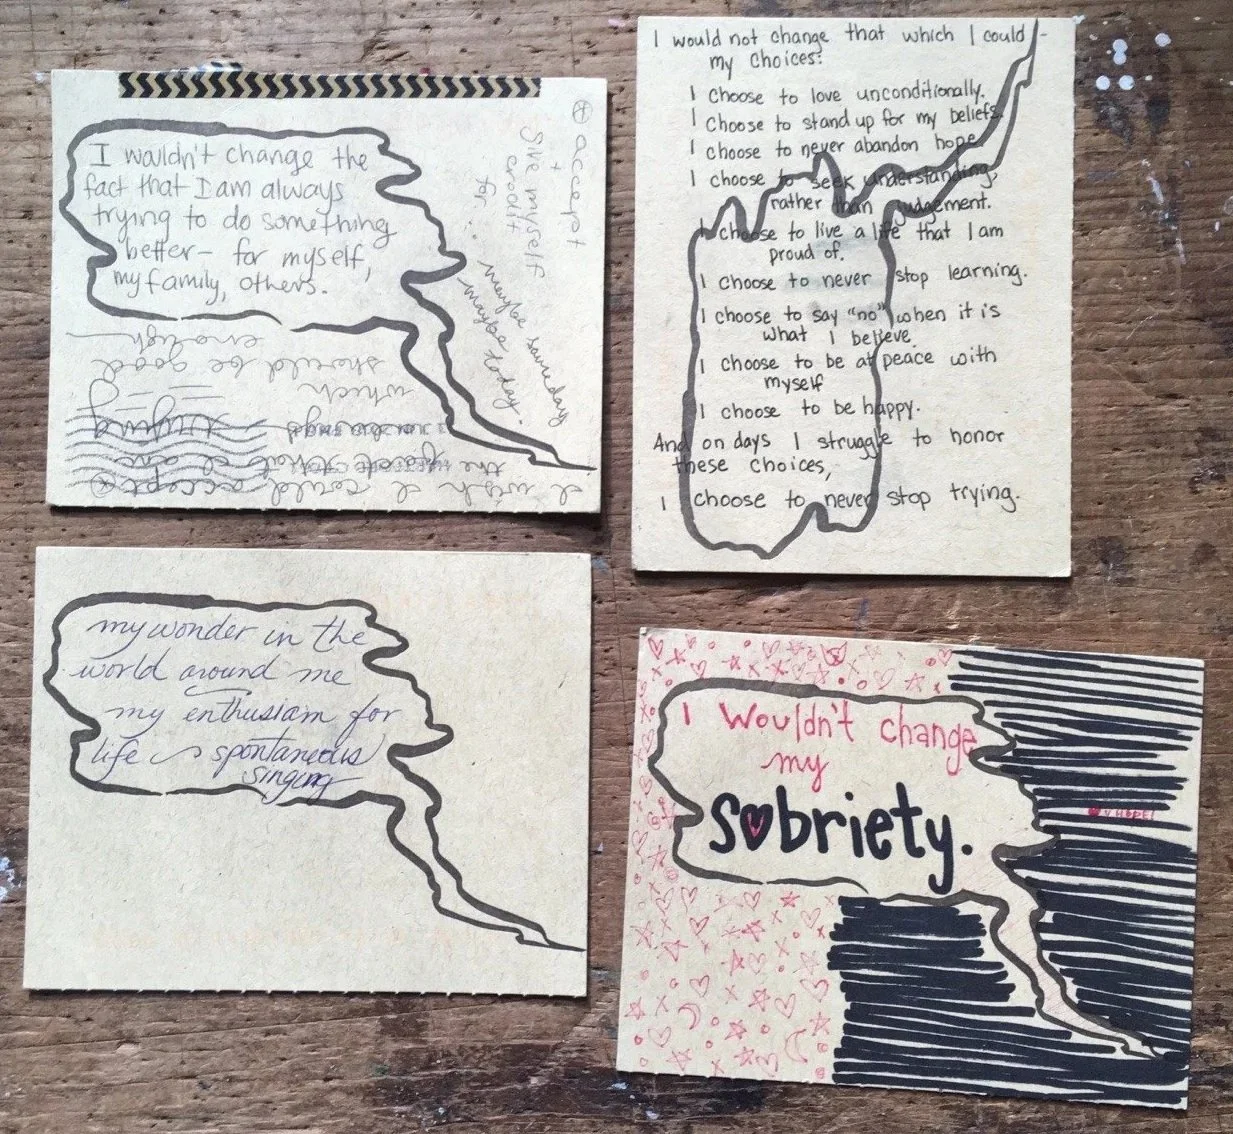 I wouldn't change the
fact that I am always
trying to do something
better - for myself,
my family, others.
⊛ accept
+
give myself
credit
for..
maybe someday
maybe today.
⊛ I wish I could accept
the fact that I am
always trying
which
should be good
enough
I would not change that which I could -
my choices:
I choose to love unconditionally.
I choose to stand up for my beliefs.
I choose to never abandon hope
I choose to seek understanding,
rather than judgement.
I choose to live a life that I am
proud of.
I choose to never stop learning.
I choose to say "no" when it is
what I believe.
I choose to be at peace with
myself
I choose to be happy.
And on days I struggle to honor
these choices,
I choose to never stop trying.
my wonder in the
world around me
my enthusiam for
life ~ spontaneous
singing
I wouldn't change
my
sobriety.